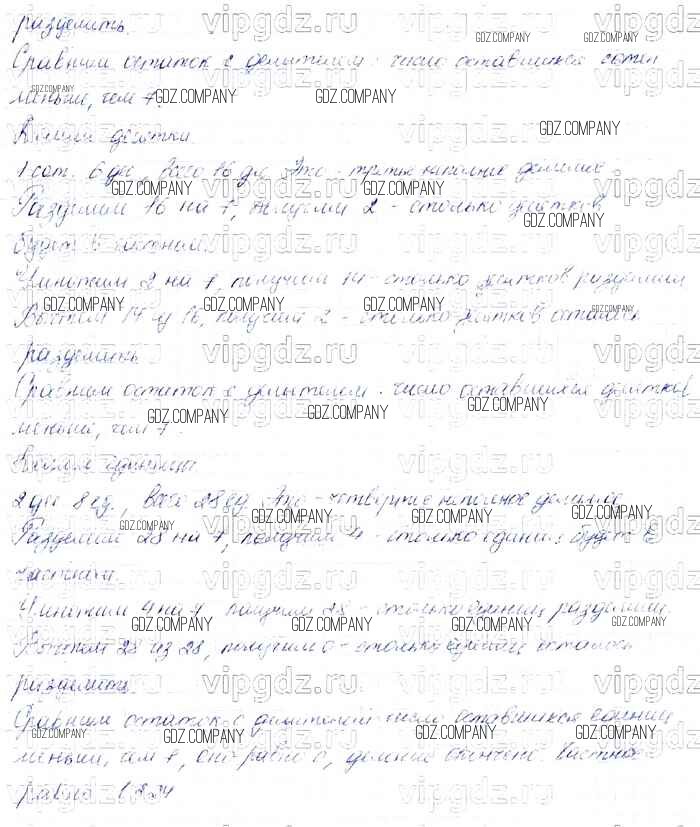 разделить.
Сравним остаток с делителем: число оставшихся сотен
меньше, чем 7.
десятки
1 сот. 6 дес., всего 16 дес. Это - третье неполное делимое
Разделим 16 на 7, получим 2 - столько десятков
будет в частном.
Умножим 2 на 7, получим 14 - столько десятков разделили
Вычтем 14 из 16, получим 2 - столько десятков осталось
разделить
Сравним остаток с делителем: число оставшихся десятков
меньше, чем 7.
единицы
2 дес 8 ед, всего 28 ед. Это - четвертое неполное делимое
Разделим 28 на 7, получим 4 - столько единиц будет в
частном.
Умножим 4 на 7 получим 28 - столько единиц разделили.
Вычтем 28 из 28, получим 0 - столько единиц осталось
разделить.
Сравним остаток с делителем: число оставшихся единиц
меньше, чем 7, оно равно 0, деление окончено. Частное
равно
vipgdz.ru
GDZ.COMPANY